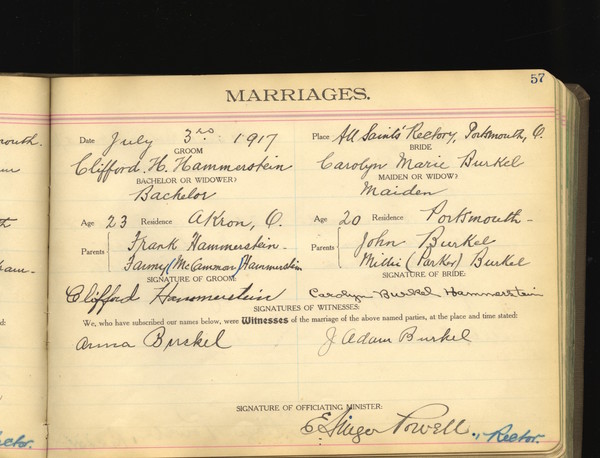 57
MARRIAGES.
outh.
Date July 3rd 1917 Place All Saints' Rectory, Portsmouth, O.
GROOM BRIDE
Clifford. H. Hammerstein Carolyn Marie Burkel
BACHELOR OR WIDOWER) MAIDEN OR WIDOW)
Bachelor Maiden
Age 23 Residence Akron, O. Age 20 Residence Portsmouth-
Parents Frank Hammerstein- Parents John Burkel
Fanny (McCammon) Hammerstein Millie (Parker) Burkel
SIGNATURE OF GROOM: SIGNATURE OF BRIDE:
Clifford Hammerstein Carolyn Burkel Hammerstein
SIGNATURES OF WITNESSES:
ed: We, who have subscribed our names below, were Witnesses of the marriage of the above named parties, at the place and time stated:
Anna Burkel J Adam Burkel
SIGNATURE OF OFFICIATING MINISTER:
Powell, Rector.
ector.